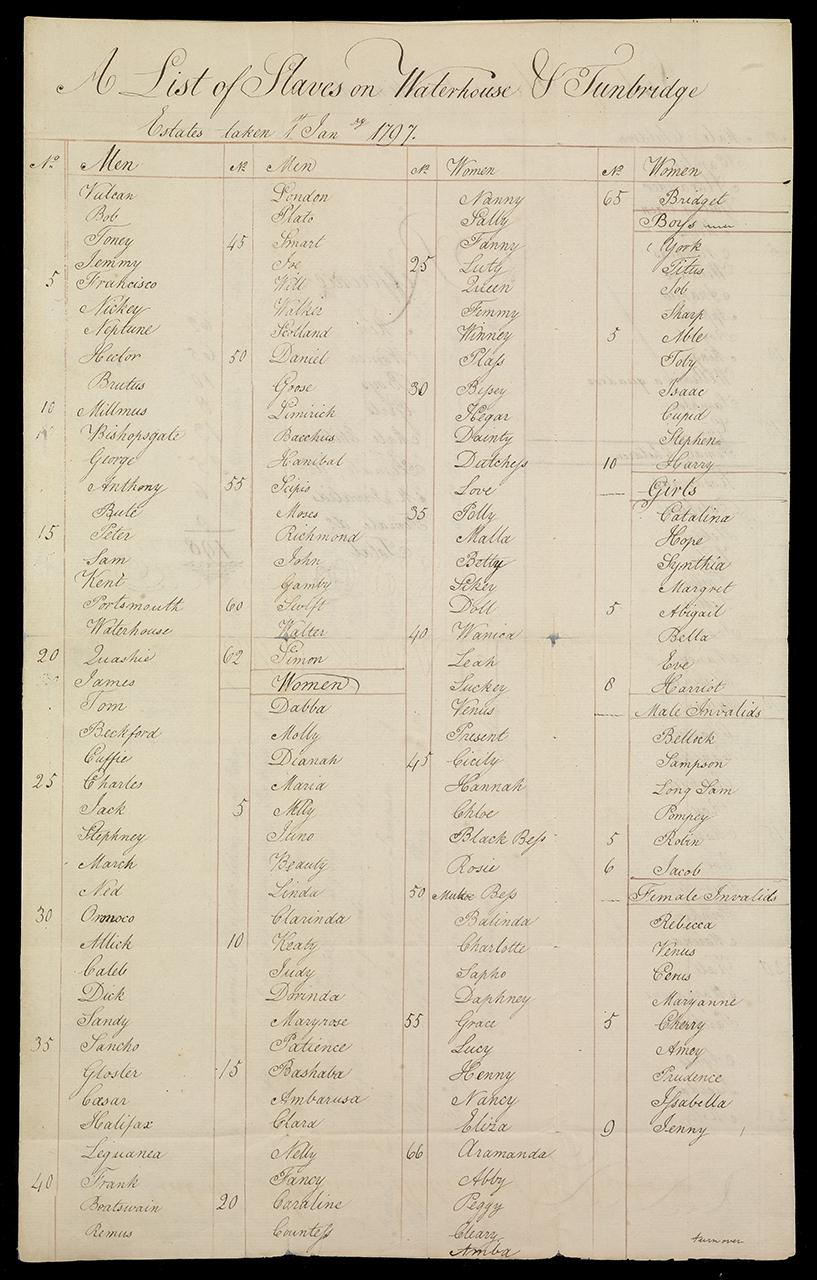 A List of Slaves on Waterhouse & Tunbridge
Estates taken 1st Jany 1797.
No Men
Vulcan
Bob
Toney
Jemmy
5 Francisco
Nickey
Neptune
Hector
Brutus
10 Millmus
Bishopsgate
George
Anthony
Bute
15 Peter
Sam
Kent
Portsmouth
Waterhouse
20 Quashie
James
Tom
Beckford
Cuffie
25 Charles
Jack
Stephney
March
Ned
30 Oronoco
Allick
Caleb
Dick
Sandy
35 Sancho
Gloster
Cæsar
Halifax
Liguanea
40 Frank
Boatswain
Remus
No Men
London
Plato
45 Smart
Joe
Will
Walker
Scotland
50 Daniel
Goose
Limirick
Bacchus
Hanibal
55 Scipio
Moses
Richmond
John
Gamby
60 Swift
Walter
62 Simon
Women
Dabba
Molly
Dianah
Maria
5 Milly
Juno
Beauty
Linda
Clarinda
10 Keaty
Judy
Dorinda
Maryrose
Patience
15 Bashaba
Ambarusa
Clara
Nelly
Fancy
20 Caroline
Countess
No Women
Nanny
Sally
Fanny
25 Luty
Queen
Femmy
Winney
Plass
30 Bessey
Hegar
Dainty
Dutchess
Love
35 Polly
Malla
Betty
Sikey
Doll
40 Wanica
Leah
Suckey
Venus
Present
45 Cicily
Hannah
Chloe
Black Bess
Rosie
50 Bess
Balinda
Charlotte
Sapho
Daphney
55 Grace
Lucy
Henny
Nancy
Eliza
66 Aramanda
Abby
Peggy
Cleary
Amba
No Women
65 Bridget
Boys
York
Titus
Job
Sharp
5 Able
Toby
Isaac
Cupid
Stephen
10 Harry
Girls
Catalina
Hope
Synthia
Margret
5 Abigail
Bella
Eve
8 Harriot
Male Invalids
Bellock
Sampson
Long Sam
Pompey
5 Robin
6 Jacob
Female Invalids
Rebecca
Venus
Cerus
Maryanne
5 Cherry
Amey
Prudence
Issabella
9 Jenny
turn over